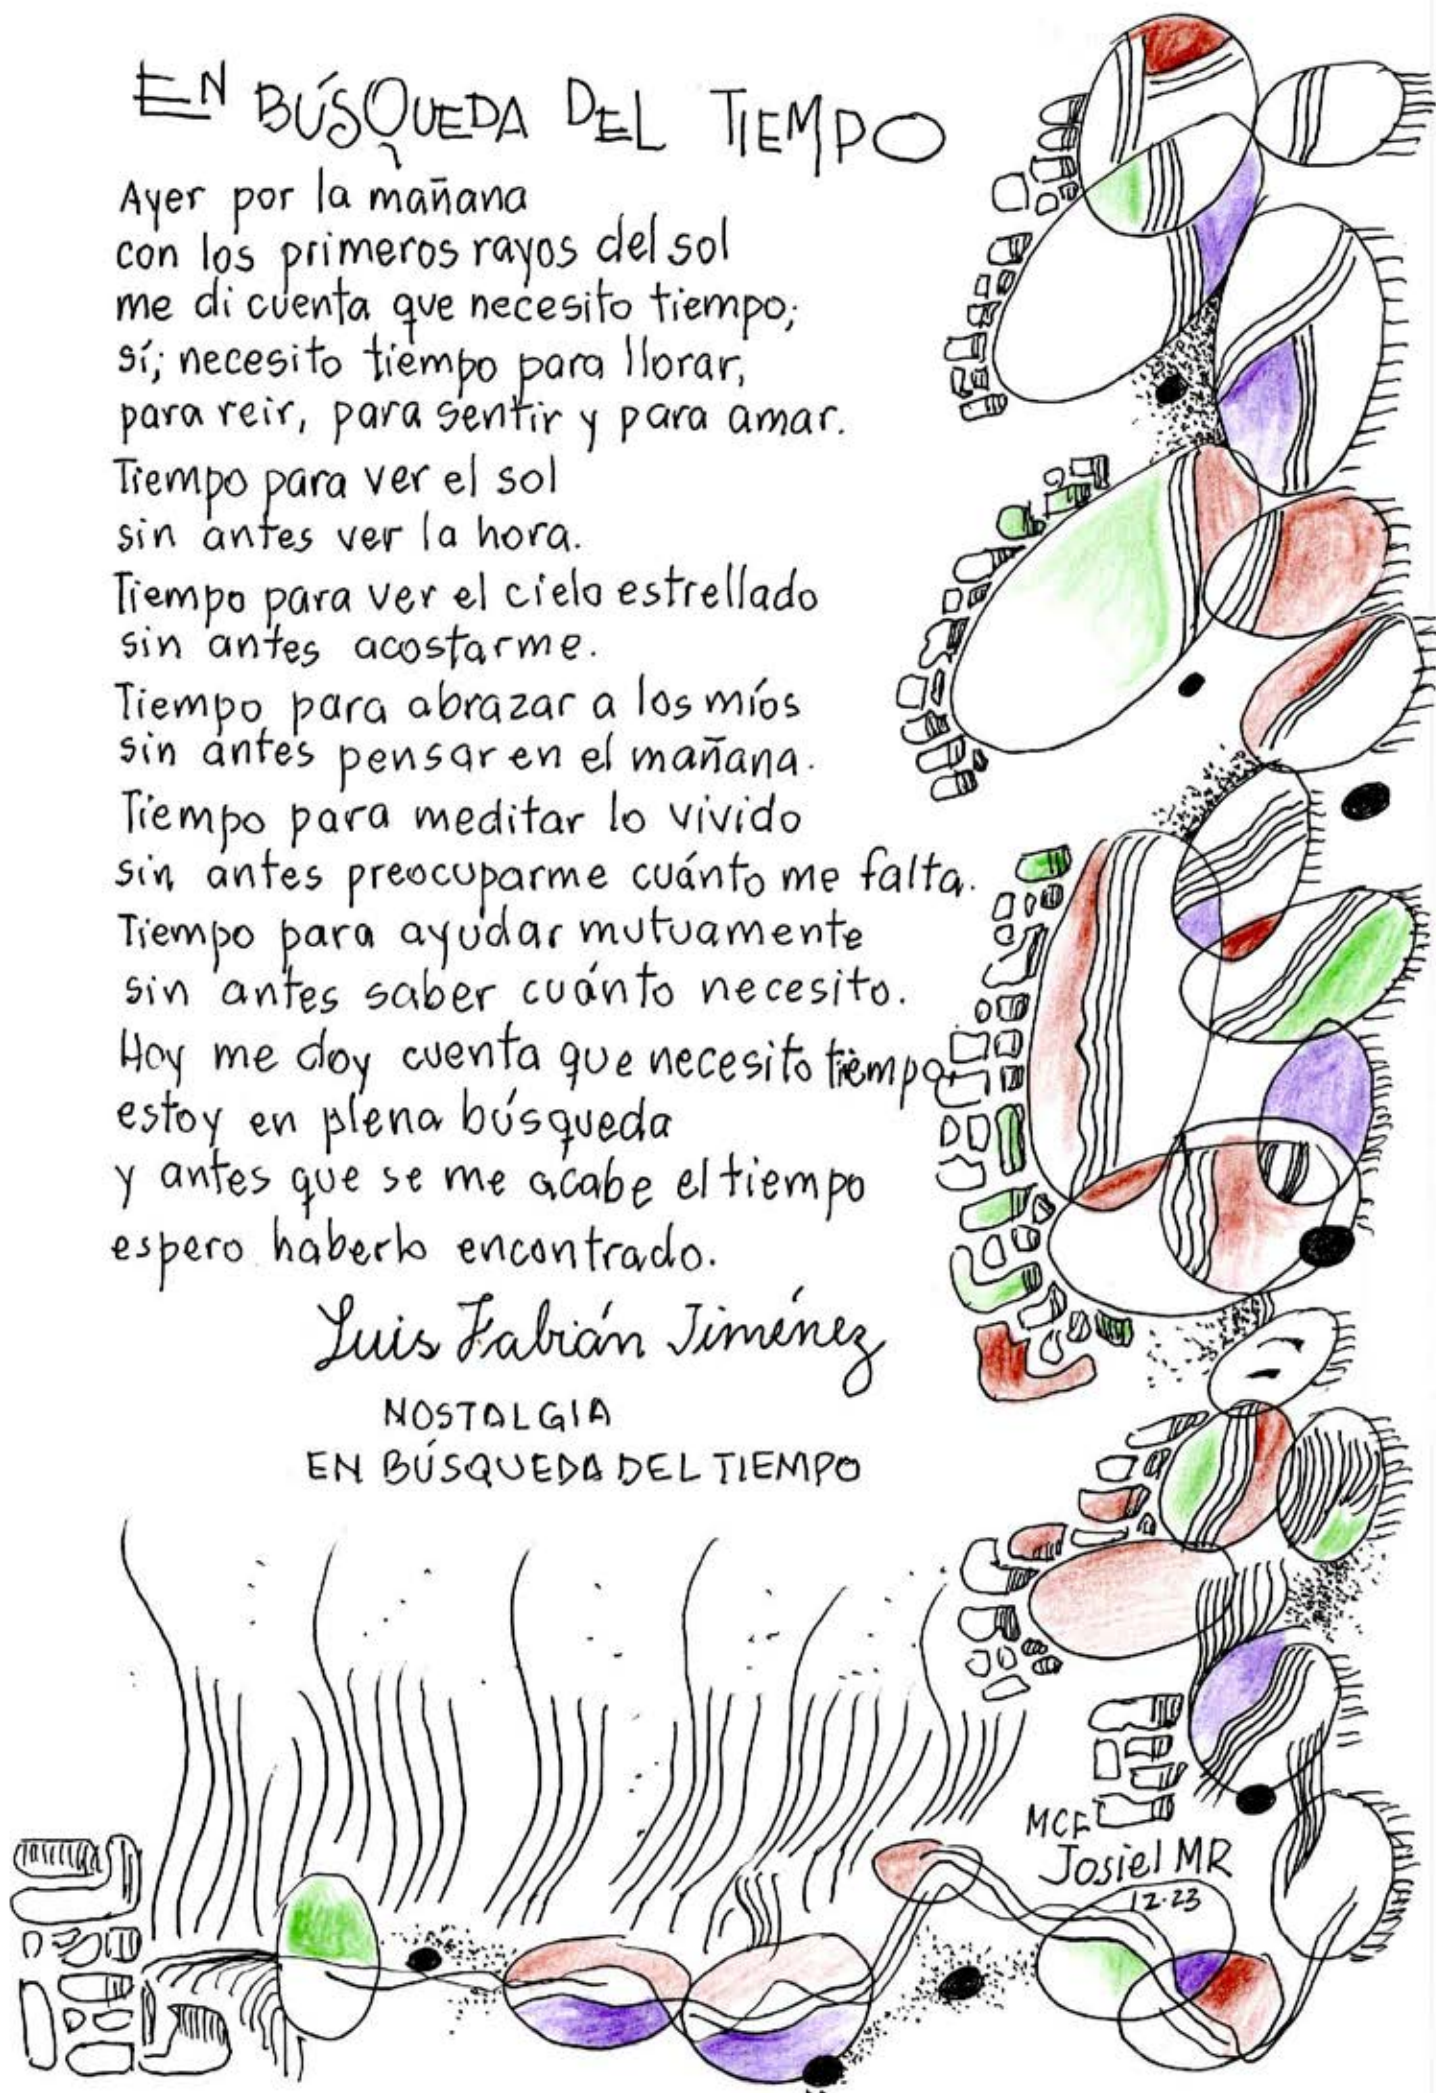 EN BÚSQUEDA DEL TIEMPO
Ayer por la mañana
con los primeros rayos del sol
me di cuenta que necesito tiempo;
sí; necesito tiempo para llorar,
para reir, para sentir y para amar.
Tiempo para ver el sol
sin antes ver la hora.
Tiempo para ver el cielo estrellado
sin antes acostarme.
Tiempo para abrazar a los míos
sin antes pensar en el mañana.
Tiempo para meditar lo vivido
sin antes preocuparme cuánto me falta.
Tiempo para ayudar mutuamente
sin antes saber cuánto necesito.
Hoy me doy cuenta que necesito tiempo,
estoy en plena búsqueda
y antes que se me acabe el tiempo
espero haberlo encontrado.
Luis Fabián Jiménez
NOSTALGIA
EN BÚSQUEDA DEL TIEMPO
MCF
Josiel MR
12-23